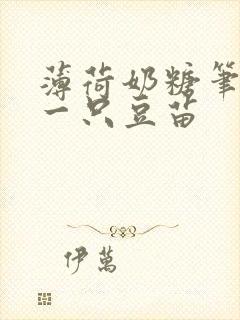 薄荷奶糖筆
一只豆苗
伊萬